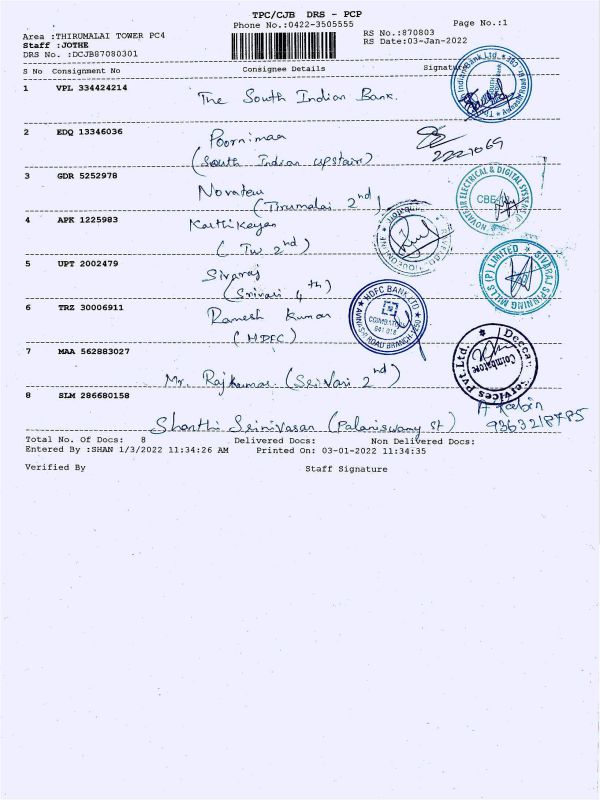 TPC/CJB DRS - PCP
Phone No.:0422-3505555 Page No.:1
Area :THIRUMALAI TOWER PC4 RS No.:870803
Staff :JOTHE RS Date:03-Jan-2022
DRS No. :DCJB87080301
S No Consignment No Consignee Details Signature
1 VPL 334424214 The South Indian Bank.
2 EDQ 13346036 Poornimaa
(South Indian upstair)
3 GDR 5252978 Novateur
(Tirumalai 2nd)
NOVATEUR ELECTRICAL & DIGITAL SYSTEMS
CBE
4 APK 1225983 Karthikeyan
(Tw 2nd)
5 UPT 2002479 Sivaraj
(Srivari 4th)
SIVARAJ SPINNING MILLS (P) LIMITED
6 TRZ 30006911 Ramesh Kumar
(HDFC)
HDFC BANK LTD
COIMBATORE
641 018
ROAD BRANCH
7 MAA 562883027 Mr. Rajkumar (Srivari 2nd)
Deccan Services Pvt. Ltd.
Coimbatore
8 SLM 286680158 Shanthi Srinivasan (Palaniswamy st)
9363218785
Total No. Of Docs: 8 Delivered Docs: Non Delivered Docs:
Entered By :SHAN 1/3/2022 11:34:26 AM Printed On: 03-01-2022 11:34:35
Verified By Staff Signature